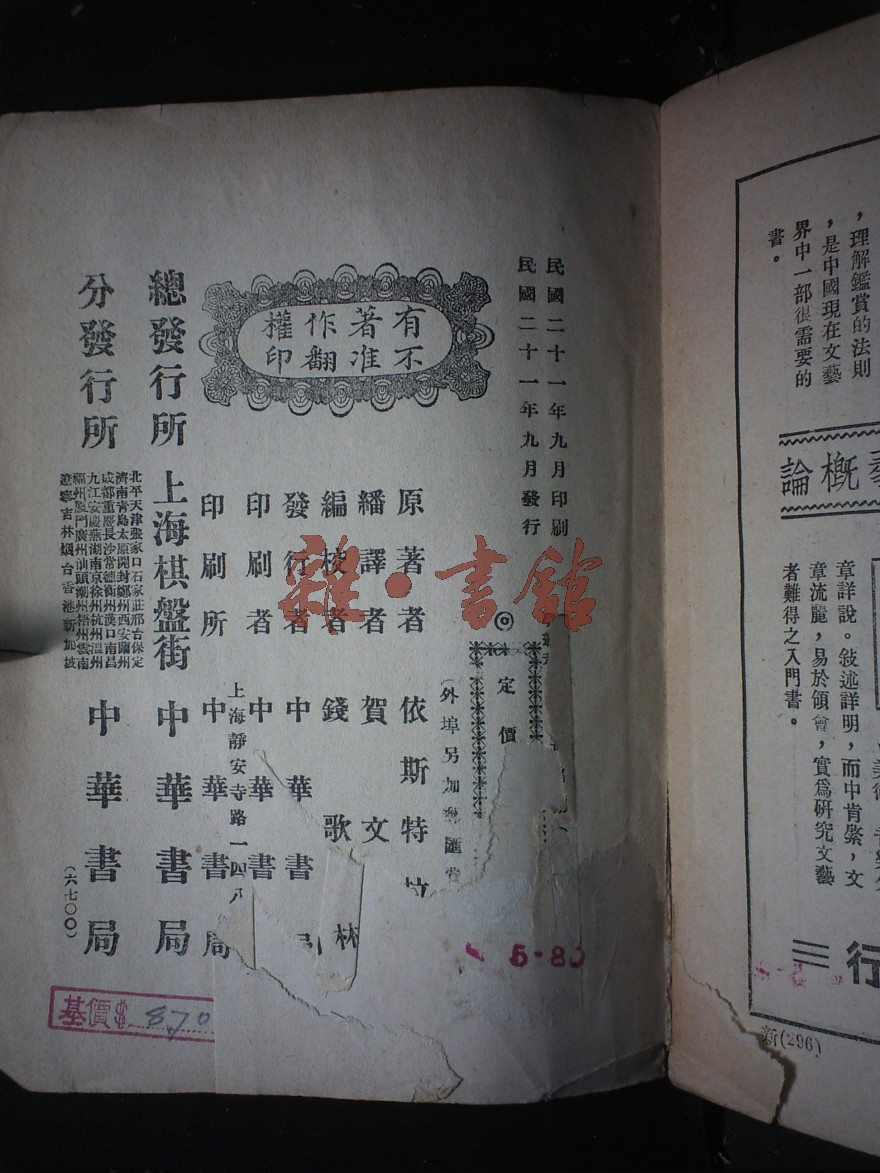 ，理解鑑賞的法則
，是中國現在文藝
界中一部很需要的
書。
概論
章詳說。敍述詳明，而中肯綮，文
章流麗，易於領會，實爲研究文藝
者難得之入門書。
行
新(296)
民國二十一年九月印刷
民國二十一年九月發行
◎
定價
(外埠另加 匯
有著作權
不准翻印
原著者 依斯特
繙譯者 賀文
編校者 錢歌 林
發行者 中華書
印刷者 中華書
上海靜安寺路一四八
印刷所 中華書局
總發行所 上海棋盤街 中華書局
分發行所
北平天津張家口石家莊邢台保定
濟南青島太原開封鄭州西安蘭州
成都重慶長沙常德衡州漢口南昌
九江安慶蕪湖南京徐州杭州溫州
福州廈門廣州汕頭潮州梧州雲南
遼寧吉林烟台香港新加坡
中華書局
(六七〇〇)
5-80
基價$ 870
雜·書館